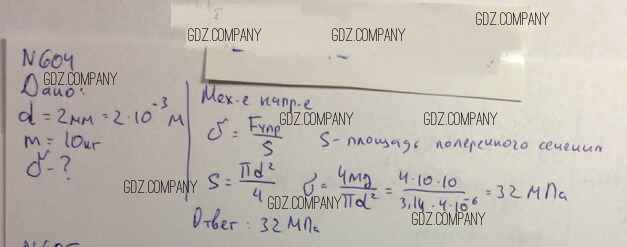 GDZ.COMPANY
GDZ.COMPANY GDZ.COMPANY
N604
GDZ.COMPANY
Дано:
d = 2мм = 2·10⁻³ м
m = 10кг
σ - ?
Мех-е напр-е
GDZ.COMPANY
σ = Fупр/S S - площадь поперечного сечения
GDZ.COMPANY
S = πd²/4 σ = 4mg/πd² = 4·10·10/3,14·4·10⁻⁶ = 32 МПа
GDZ.COMPANY GDZ.COMPANY
Ответ: 32 МПа
GDZ.COMPANY